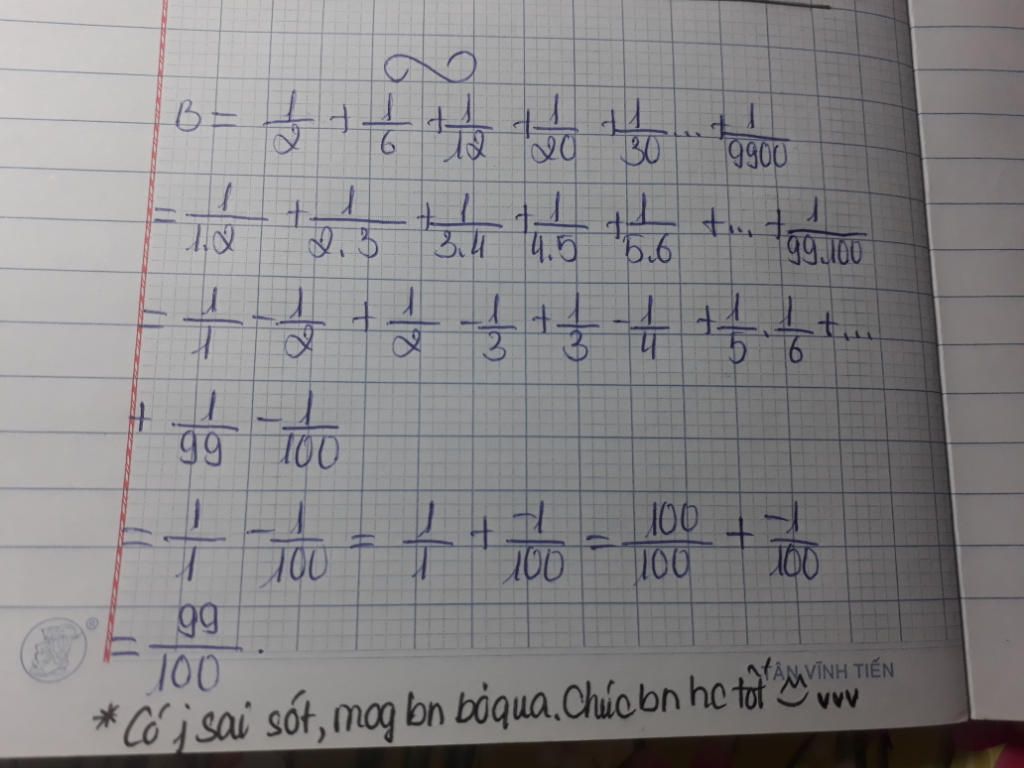 B = 1/2 + 1/6 + 1/12 + 1/20 + 1/30 ... + 1/9900
= 1/1.2 + 1/2.3 + 1/3.4 + 1/4.5 + 1/5.6 + ... + 1/99.100
= 1/1 - 1/2 + 1/2 - 1/3 + 1/3 - 1/4 + 1/5 . 1/6 + ...
+ 1/99 - 1/100
= 1/1 - 1/100 = 1/1 + -1/100 = 100/100 + -1/100
= 99/100 .
®
TÂN VĨNH TIẾN
* Có j sai sót, mog bn bỏ qua. Chúc bn hc tốt vvv